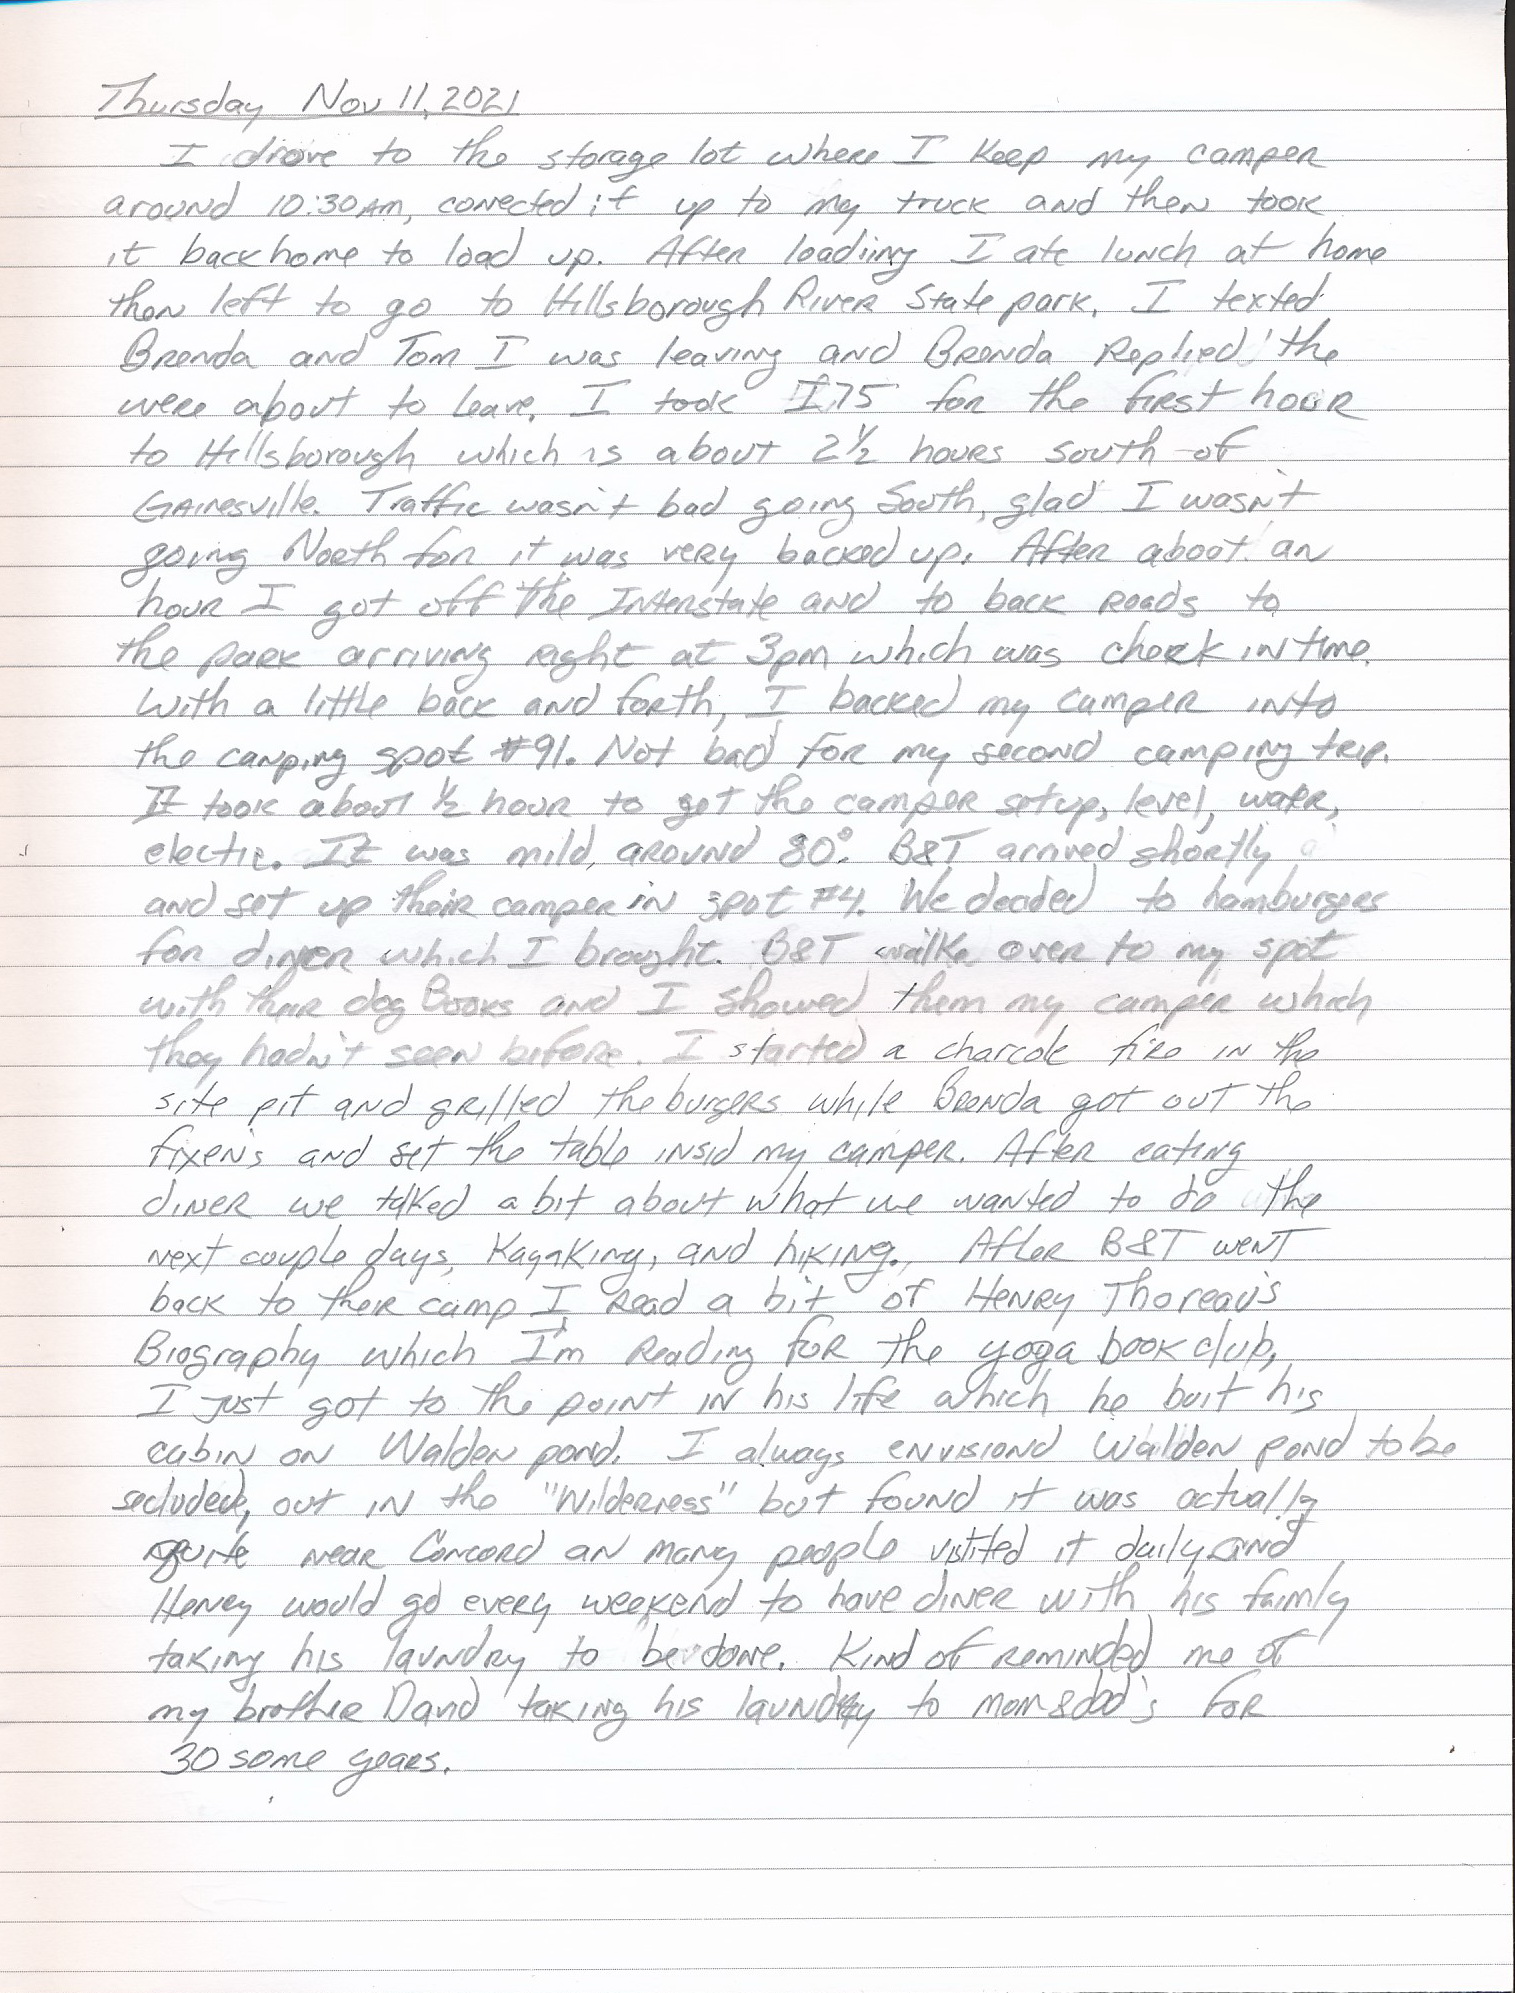 Thursday Nov 11, 2021
I drove to the storage lot where I keep my camper
around 10:30AM, conected it up to my truck and then took
it back home to load up. After loadiing I ate lunch at home
then left to go to Hillsborough River State park. I texted
Brenda and Tom I was leaving and Brenda Replied the
were about to leave. I took I75 for the first hour
to Hillsborough which is about 2½ hours south of
Gainesville. Traffic wasn't bad going South, glad I wasn't
going North for it was very backed up. After about an
hour I got off the Interstate and to back roads to
the park arriving right at 3pm which was check in time.
With a little back and forth, I backed my camper into
the canping spot #91. Not bad for my second camping trip.
It took about ½ hour to get the camper setup, level, water,
electic. It was mild, around 80°. B&T arrived shortly
and set up their camper in spot #4. We decided to hamburgers
for diner which I brought. B&T walke over to my spot
with their dog Books and I showed them my camper which
they hadn't seen before. I started a charcole fire in the
site pit and grilled the burgers while Brenda got out the
fixen's and set the table insid my camper. After eating
diner we talked a bit about what we wanted to do the
next couple days, Kayaking, and hiking. After B&T went
back to their camp I read a bit of Henry Thoreau's
Biography which I'm reading for the yoga book club,
I just got to the point in his life which he buit his
cabin on Walden pond. I always envisiond Walden pond to be
secluded, out in the "Wilderness" but found it was actually
quite near Concord an many people vistited it daily and
Henry would go every weekend to have diner with his faimly
taking his laundry to be done. Kind of reminded me of
my brother David taking his laundry to mom & dad's for
30 some years.